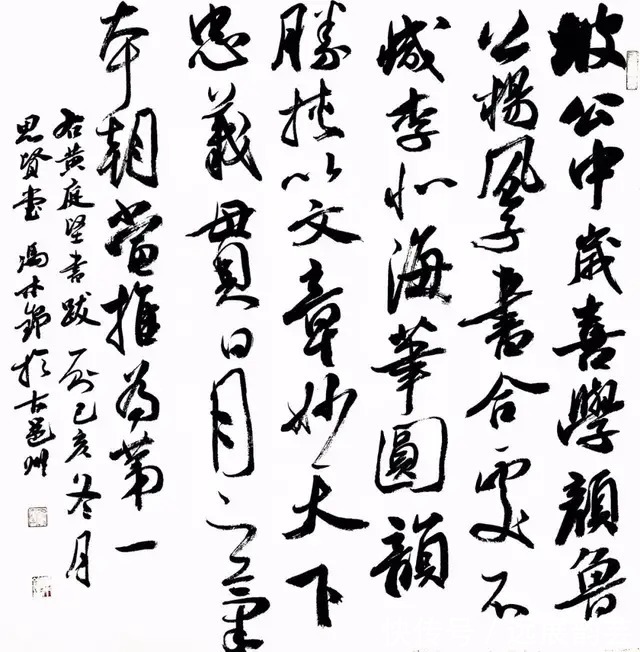 坡公中歲喜學顏魯
公楊風子書合處不
減李北海筆圓韻
勝挾以文章妙天下
忠義貫日月之氣
本朝當推為第一
右黃庭堅書跋一則己亥冬月
思賢堂馮於古邕州